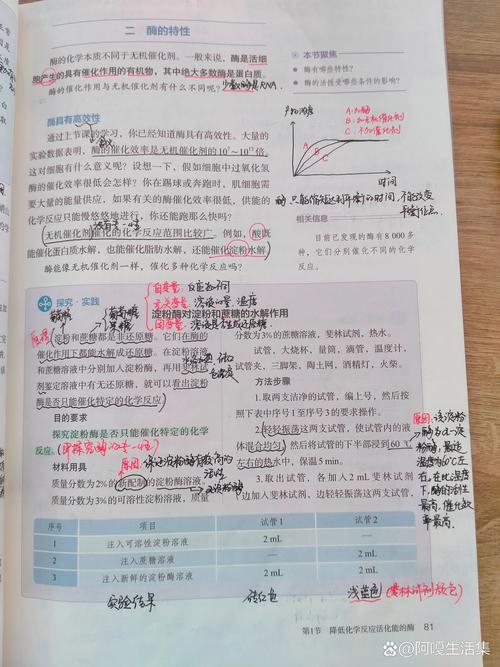 二 酶的特性
酶的化学本质不同于无机催化剂。一般来说,酶是活细
胞产生的具有催化作用的有机物,其中绝大多数酶是蛋白质。
酶的催化作用与无机催化剂有什么不同呢?
少数酶是RNA
本节聚焦
酶有哪些特性?
酶的活性受哪些条件的影响?
酶具有高效性
通过上节课的学习,你已经知道酶具有高效性。大量的
实验数据表明,酶的催化效率是无机催化剂的10⁷~10¹³倍。
这对细胞有什么意义呢?设想一下,假如细胞中过氧化氢
酶的催化效率很低会怎样?你在踢球或奔跑时,肌细胞需
要大量的能量供应,如果有关的酶催化效率很低,供能的
化学反应只能慢悠悠地进行,你还能跑那么快吗?
无机催化剂催化的化学反应范围比较广。例如,酸既
能催化蛋白质水解,也能催化脂肪水解,还能催化淀粉水解。
酶能像无机催化剂一样,催化多种化学反应吗?
产物浓度
A:加酶
B:加无机催化剂
C:不加催化剂
A
B
C
时间
酶只能缩短达到平衡的时间,不能改变
平衡点。
相关信息
目前已发现的酶有8 000多
种,它们分别催化不同的化学
反应。
探究·实践
淀粉酶对淀粉和蔗糖的水解作用
自变量:反应物不同
无关变量:溶液的量、温度
因变量:
葡萄糖
葡萄糖
果糖
原理:
淀粉和蔗糖都是非还原糖。它们在酶的
催化作用下都能水解成还原糖。在淀粉溶液
和蔗糖溶液中分别加入淀粉酶,再用斐林试
剂鉴定溶液中有无还原糖,就可以看出淀粉
酶是否只能催化特定的化学反应。
目的要求
探究淀粉酶是否只能催化特定的化学
反应。
材料用具
质量分数为2%的新配制的淀粉酶溶液,
质量分数为3%的可溶性淀粉溶液,质量
原因:保证淀粉酶有较高的
活性
分数为3%的蔗糖溶液,斐林试剂,热水。
试管,大烧杯,量筒,滴管,温度计,
试管夹,三脚架,陶土网,酒精灯,火柴。
方法步骤
1.取两支洁净的试管,编上号,然后按
照下表中序号1至序号3的要求操作。
2.轻轻振荡这两支试管,使试管内的液
体混合均匀,然后将试管的下半部浸到60 ℃
左右的热水中,保温5min。
3.取出试管,各加入2 mL斐林试剂
(边加入斐林试剂,边轻轻振荡这两支试管,
原因:该淀粉
酶为α-淀
粉酶,最适
温度为60℃左
右,在此温度
下,酶的活性
最高,催化效
率最高。
序号 项目 试管1 试管2
1 注入可溶性淀粉溶液 2 mL —
2 注入蔗糖溶液 — 2 mL
3 注入新鲜的淀粉酶溶液 2 mL 2 mL
实验结果 砖红色 浅蓝色(斐林试剂颜色)
第1节 降低化学反应活化能的酶 81
阿嘎生活集